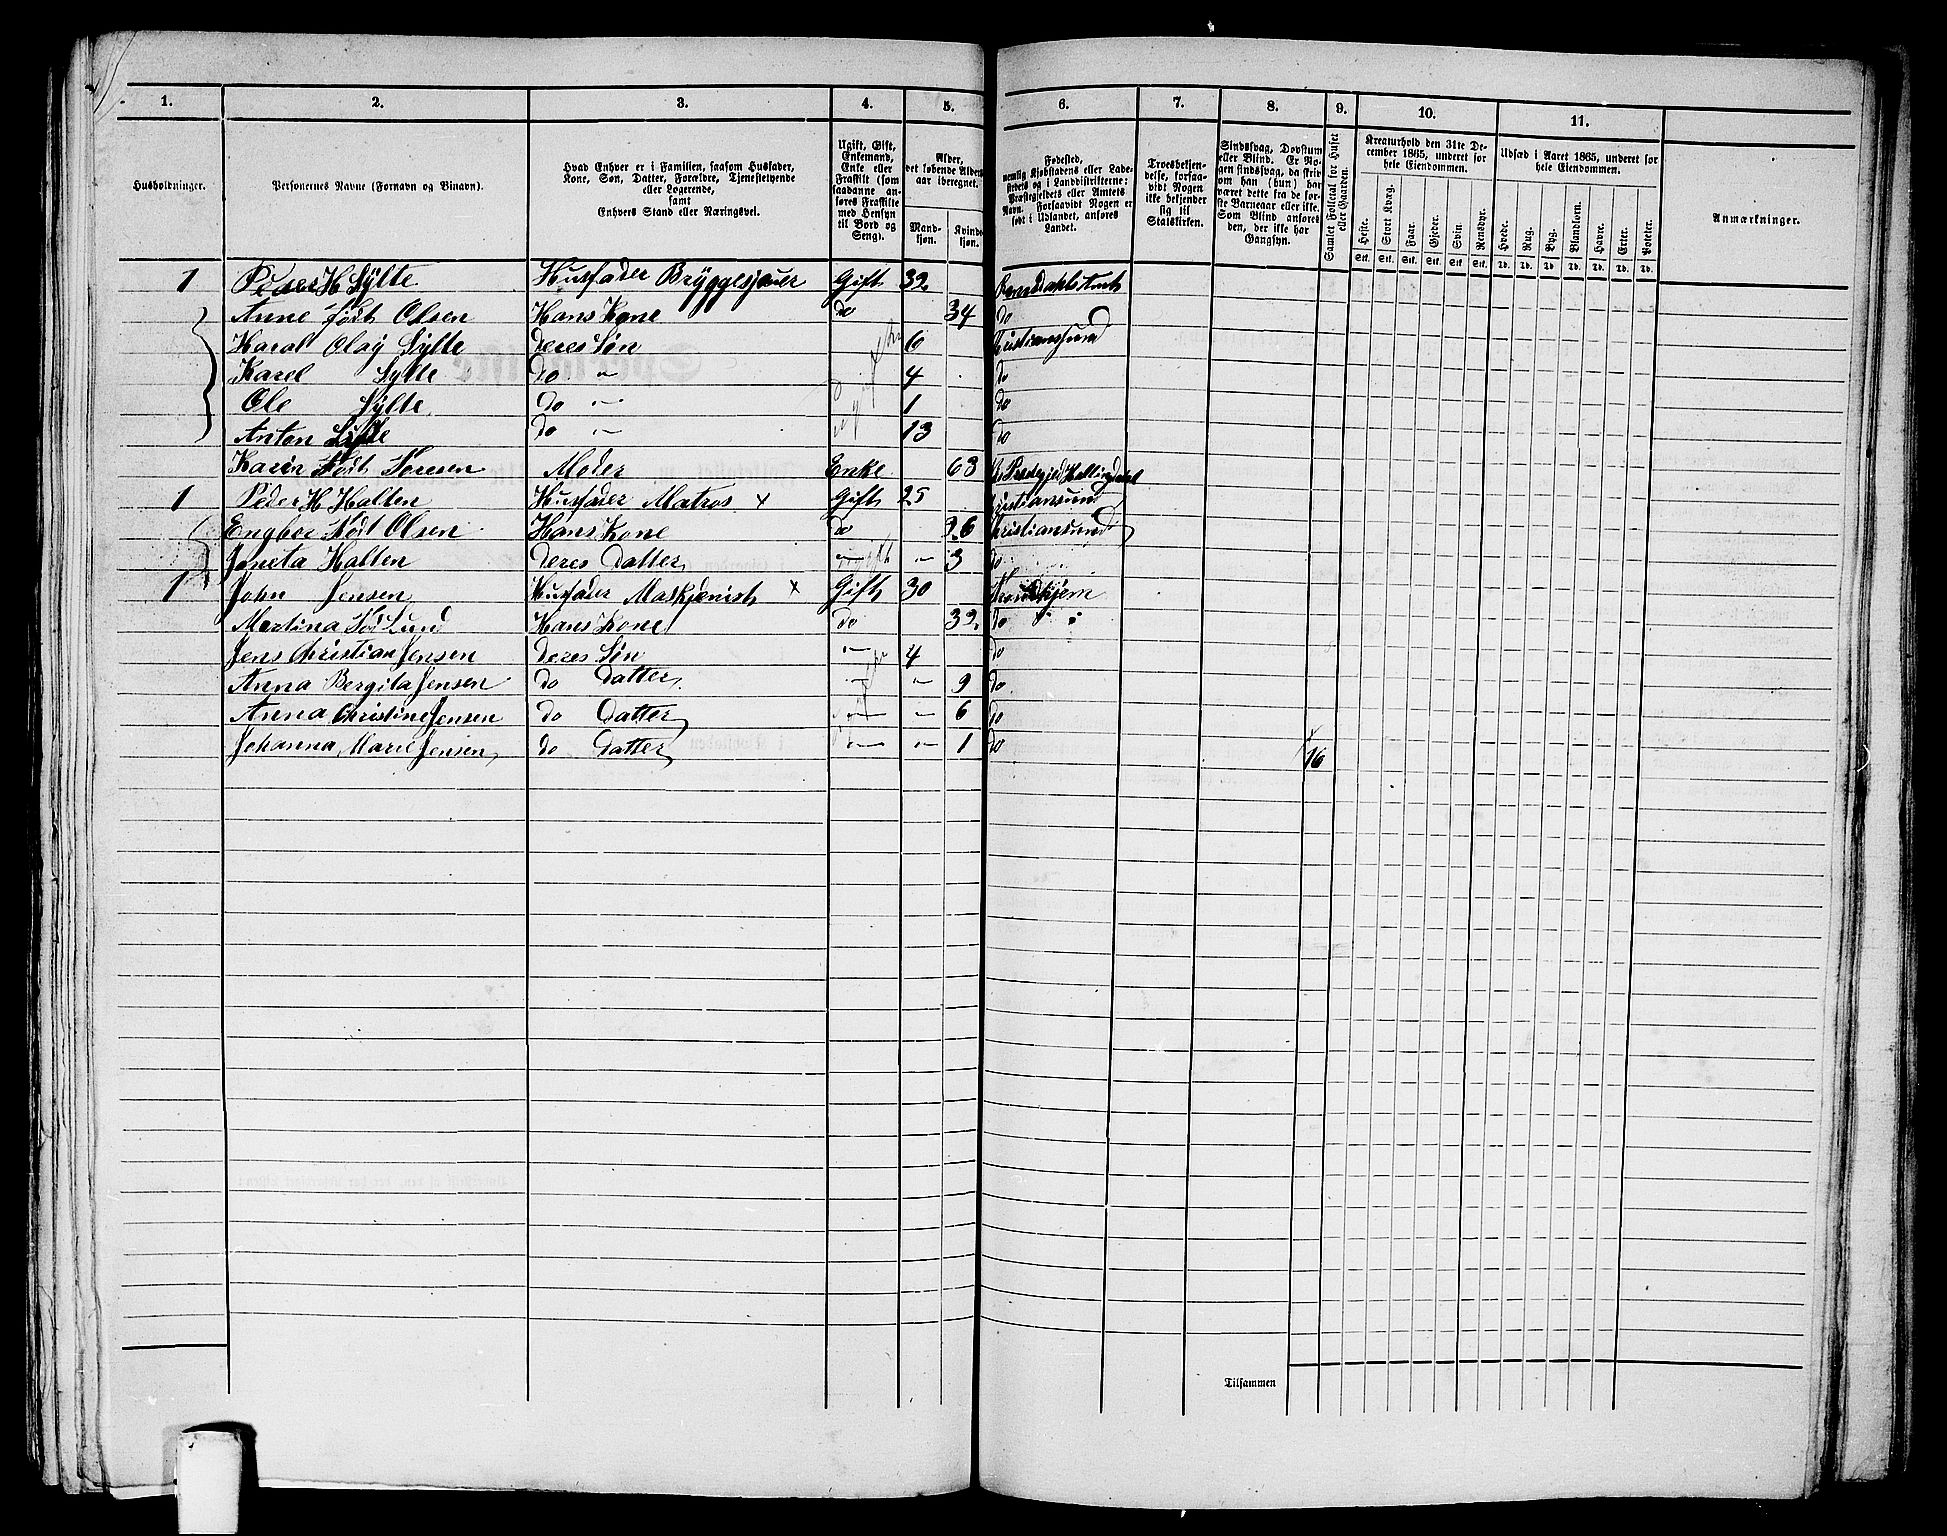 1. 2. 3. 4. 5. 6. 7. 8. 9. 10. 11.
Husholdninger.
Personernes Navne (Fornavn og Binavn).
Hvad Enhver er i Familien, saasom Husfader,
Kone, Søn, Datter, Forældre, Tjenestetyende
eller Logerende,
samt
Enhvers Stand eller Næringsvei.
Ugift, Gift,
Enkemand,
Enke eller
Fraskilt (som
saadanne an-
føres Fraskilte
med Hensyn
til Bord og
Seng).
Alder,
det løbende Alders-
aar iberegnet.
Mand-
kjøn.
Kvinde-
kjøn.
Fødested,
nemlig Kjøbstadens eller Lade-
stedets og i Landdistrikterne:
Præstegjeldets eller Amtets
Navn. Forsaavidt Nogen er
født i Udlandet, anføres
Landet.
Troesbekjen-
delse, forsaa-
vidt Nogen
ikke bekjender
sig til
Statskirken.
Sindssvag, Døvstum
eller Blind. Er No-
gen sindssvag, da skriv
om han (hun) har
været dette fra de før-
ste Barneaar eller ikke.
Som Blind anføres
den, der ikke har
Gangsyn.
Samlet Folketal for Huset
eller Gaarden.
Kreaturhold den 31te De-
cember 1865, underet for
hele Eiendommen.
Heste. Stort Kvæg. Faar. Gjeder. Svin. Rensdyr.
Stk. Stk. Stk. Stk. Stk. Stk.
Udsæd i Aaret 1865, underet for
hele Eiendommen.
Hvede. Rug. Byg. Blandkorn. Havre. Erter. Poteter.
Td. Td. Td. Td. Td. Td. Td.
Anmærkninger.
1 Peder H Sylte Husfader Bryggesjouer Gift 32 Romsdahls Amt
Anne Født Olsen Hans Kone do 34 do
Karal Olaij Sylte deres Søn 6 Kristianssund
Karel Sylte do " 4 do
Ole Sylte do " 1 do
Anton Sylte do " 13 do
Karin Født Moder Enke 63
1 Peder H Halten Husfader Matros x Gift 25 Kristiansund
Engber Født Olsen Hans Kone do 26 Christiansund
Joneta Halten deres Datter " " 3 do
1 John Jensen Husfader Maskjenist x Gift 30 Trondhjem
Martina Fød Lund Hans Kone do 32 do
Jens Christian Jensen deres Søn " 4 do
Anna Bergita Jensen do Datter " " 9 do
Anna Christine Jensen do Datter " " 6 do
Johanna Marie Jensen do Datter " " 1 do
16
Tilsammen